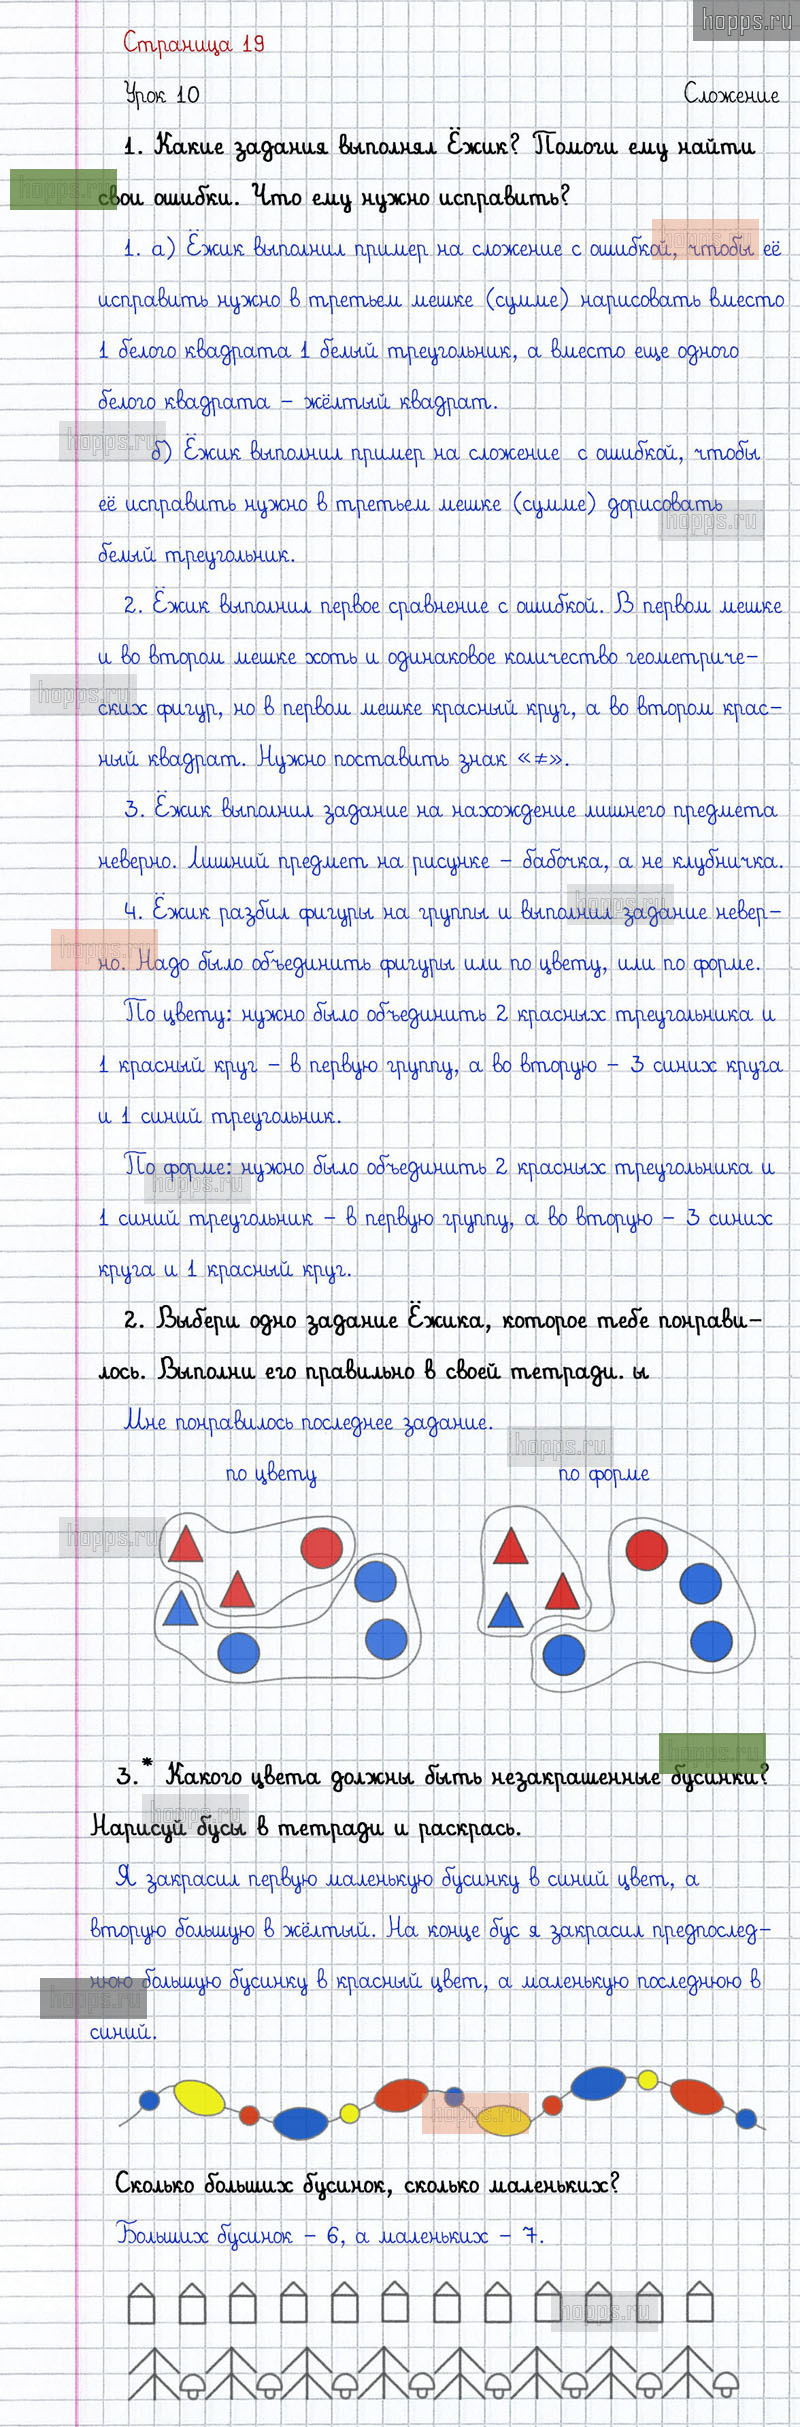 hopps.ru
Страница 19
Урок 10 Сложение
1. Какие задания выполнял Ёжик? Помоги ему найти
hopps.ru
свои ошибки. Что ему нужно исправить?
hopps.ru
1. а) Ёжик выполнил пример на сложение с ошибкой, чтобы её
исправить нужно в третьем мешке (сумме) нарисовать вместо
1 белого квадрата 1 белый треугольник, а вместо еще одного
белого квадрата – жёлтый квадрат.
hopps.ru
б) Ёжик выполнил пример на сложение с ошибкой, чтобы
её исправить нужно в третьем мешке (сумме) дорисовать
hopps.ru
белый треугольник.
2. Ёжик выполнил первое сравнение с ошибкой. В первом мешке
и во втором мешке хоть и одинаковое количество геометриче–
hopps.ru
ских фигур, но в первом мешке красный круг, а во втором крас–
ный квадрат. Нужно поставить знак «≠».
3. Ёжик выполнил задание на нахождение лишнего предмета
неверно. Лишний предмет на рисунке – бабочка, а не клубничка.
hopps.ru
4. Ёжик разбил фигуры на группы и выполнил задание невер–
hopps.ru
но. Надо было объединить фигуры или по цвету, или по форме.
По цвету: нужно было объединить 2 красных треугольника и
1 красный круг – в первую группу, а во вторую – 3 синих круга
и 1 синий треугольник.
По форме: нужно было объединить 2 красных треугольника и
hopps.ru
1 синий треугольник – в первую группу, а во вторую – 3 синих
круга и 1 красный круг.
2. Выбери одно задание Ёжика, которое тебе понрави–
лось. Выполни его правильно в своей тетради. ы
Мне понравилось последнее задание.
hopps.ru
по цвету по форме
hopps.ru
hopps.ru
3.* Какого цвета должны быть незакрашенные бусинки?
hopps.ru
Нарисуй бусы в тетради и раскрась.
Я закрасил первую маленькую бусинку в синий цвет, а
вторую большую в жёлтый. На конце бус я закрасил предпослед–
нюю большую бусинку в красный цвет, а маленькую последнюю в
hopps.ru
синий.
hopps.ru
Сколько больших бусинок, сколько маленьких?
Больших бусинок – 6, а маленьких – 7.
hopps.ru